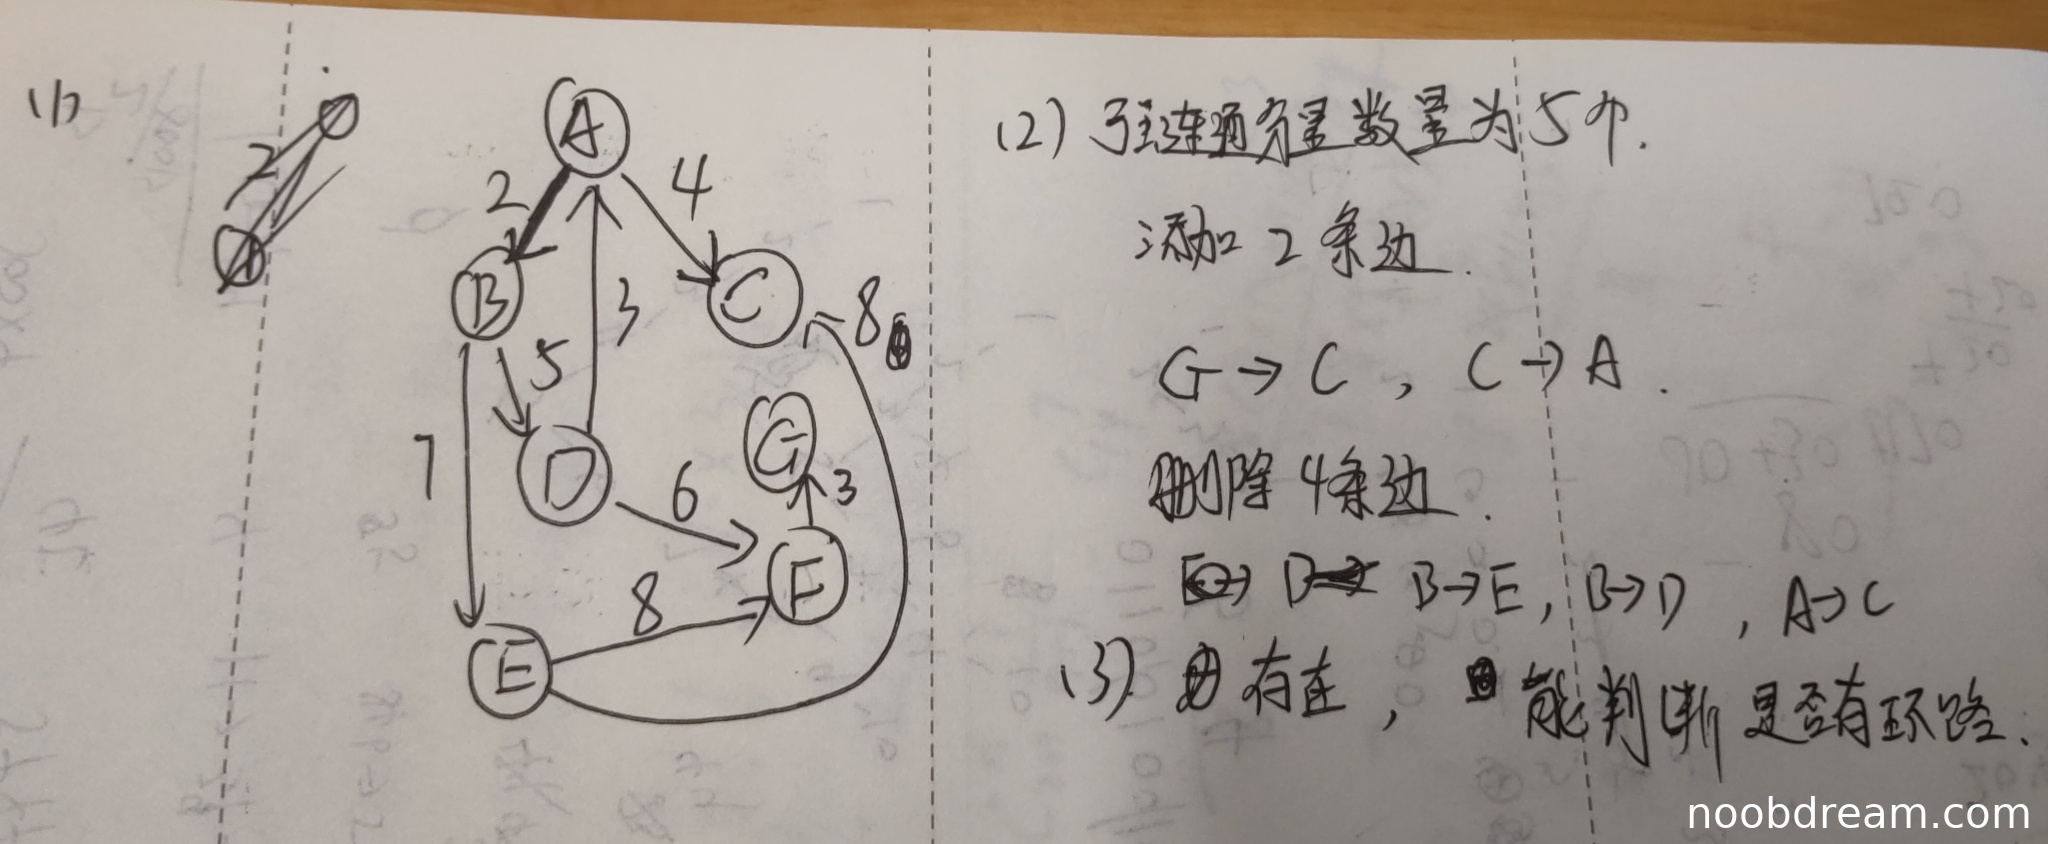 (1)
2
A
2
4
B
C
3
8
5
7
G
D
6
3
F
8
E
(2) 强连通分量数量为5个.
添加 2 条边.
G → C , C → A .
删除 4条边.
B→E, B→D , A→C
(3) 存在, 能判断是否有环路.
noobdream.com